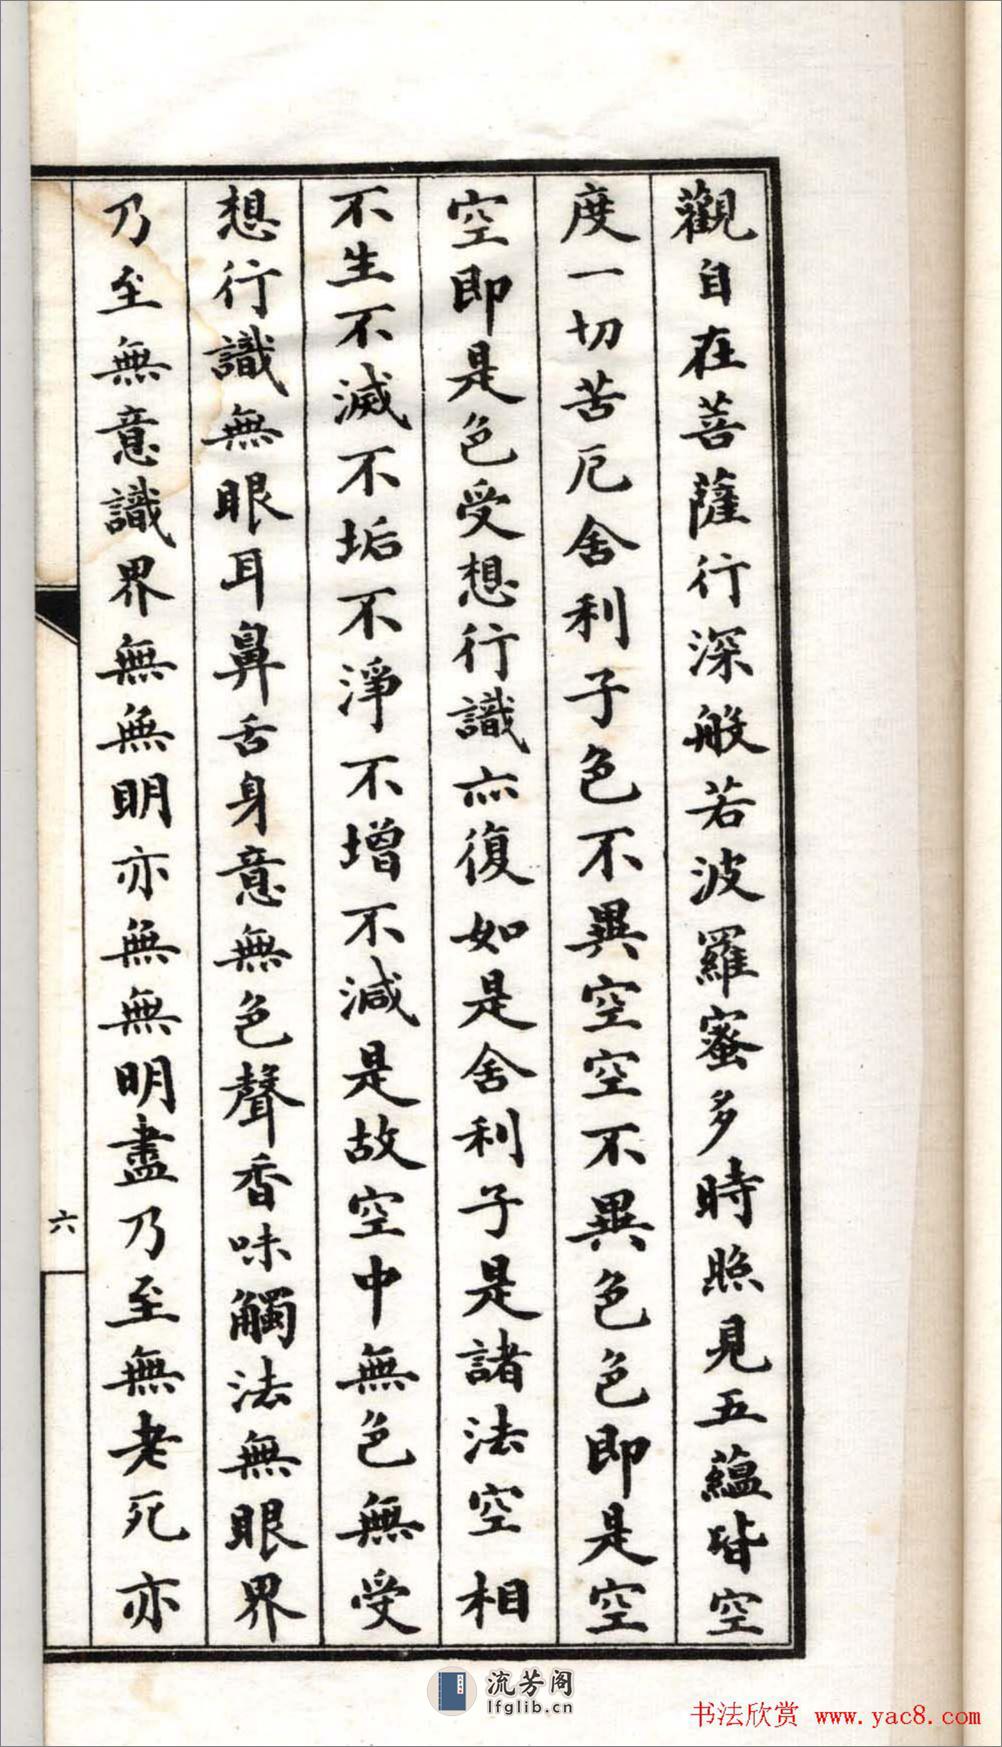 觀自在菩薩行深般若波羅蜜多時照見五蘊皆空
度一切苦厄舍利子色不異空空不異色色即是空
空即是色受想行識亦復如是舍利子是諸法空相
不生不滅不垢不淨不增不減是故空中無色無受
想行識無眼耳鼻舌身意無色聲香味觸法無眼界
乃至無意識界無無明亦無無明盡乃至無老死亦
六
流芳阁
lfglib.cn
书法欣赏 www.yac8.com